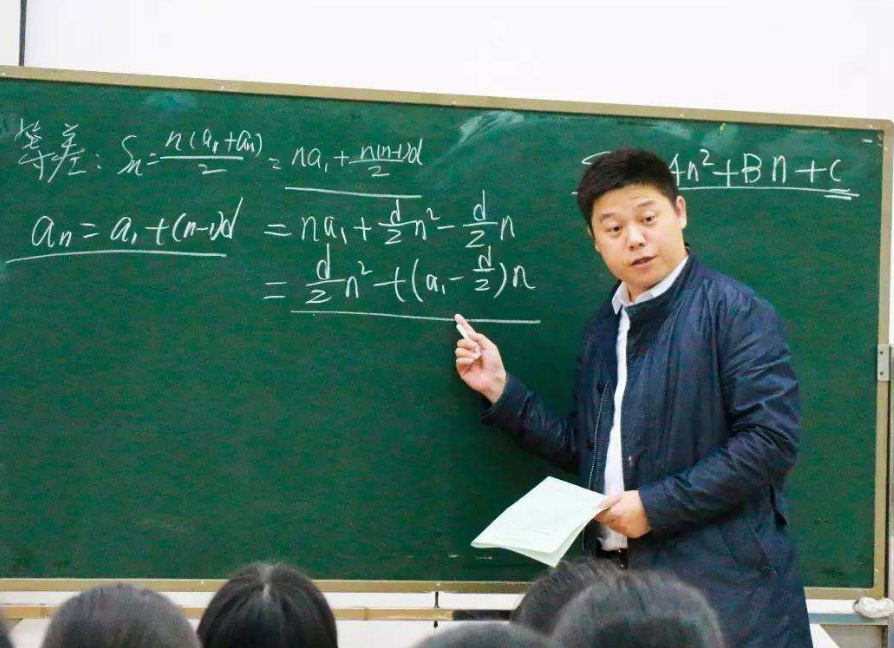 等差: Sn = n(a₁+an)/2 = na₁ + n(n-1)d/2
an = a₁+(n-1)d = na₁ + d/2 n² - d/2 n
= d/2 n² + (a₁ - d/2)n
An²+Bn+C